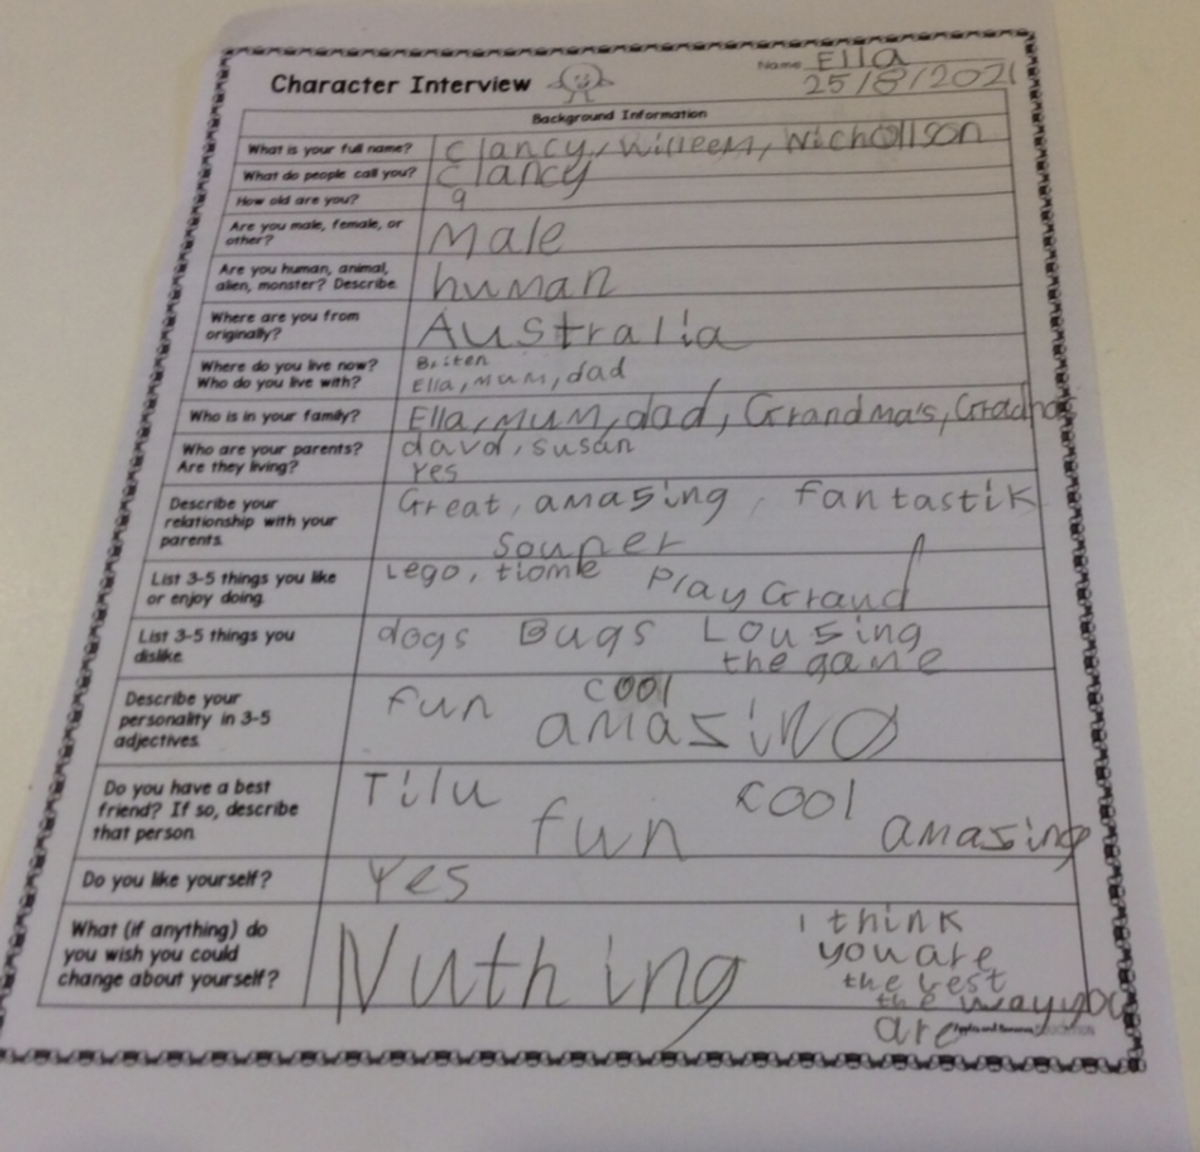 Character Interview
Name Ella
25/8/2021
Background Information
What is your full name? Clancy, Willeem, Nichollson
What do people call you? Clancy
How old are you? 9
Are you male, female, or
other?
Male
Are you human, animal,
alien, monster? Describe.
human
Where are you from
originally?
Australia
Where do you live now?
Who do you live with?
Briten
Ella, mum, dad
Who is in your family? Ella, mum, dad, Grandma's,
Who are your parents?
Are they living?
davd, susan
Yes
Describe your
relationship with your
parents.
Great, amasing, fantastik
Souper
List 3-5 things you like
or enjoy doing.
Lego, Play Graund
List 3-5 things you
dislike.
dogs Bugs Lousing
the game
Describe your
personality in 3-5
adjectives.
fun cool
amasing
Do you have a best
friend? If so, describe
that person.
Tilu fun cool amasing
Do you like yourself? Yes
What (if anything) do
you wish you could
change about yourself?
Nuthing
i think
you are
the best
the way you
are